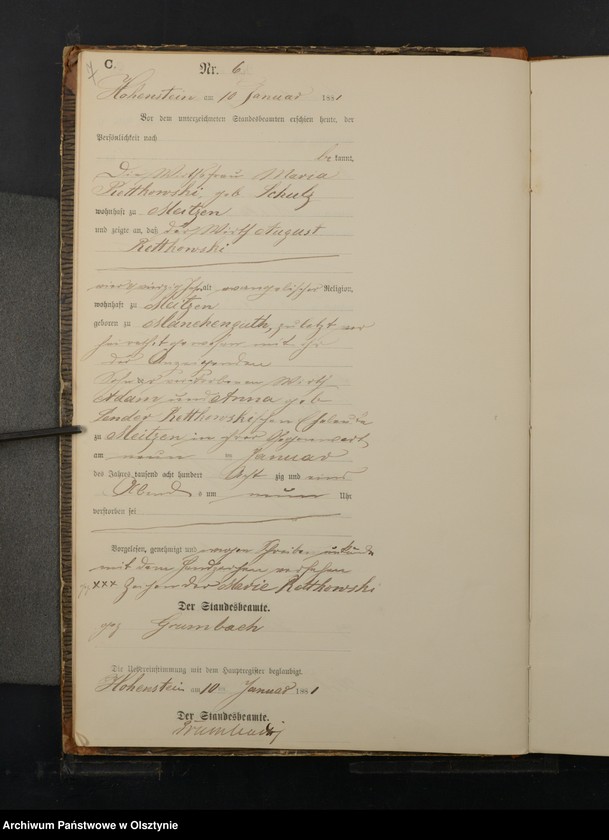 C.
Nr. 6
Hohenstein am 10 Januar 1881
Vor dem unterzeichneten Standesbeamten erschien heute, der
Persönlichkeit nach
be kannt,
Die Wirthsfrau Maria
Rettkowski, geb Schulz
wohnhaft zu Meitzen
und zeigte an, daß der Wirth August
Rettkowski
alt evangelischer Religion,
wohnhaft zu Meitzen
geboren zu Manchenguth, zuletzt ver
heirathet gewesen mit ihr
der Anzeigenden
Sohn verstorbenen Wirth
Adam und Anna geb
Sender Rettkowskischen Eheleute
zu Meitzen in ihrer Gegenwart
am neun ten Januar
des Jahres tausend acht hundert Acht zig und eins
Abends um neun Uhr
verstorben sei
Vorgelesen, genehmigt und wegen Schreibens unkunde
mit dem Handzeichen versehen
xxx Zeichen der Marie Rettkowski
Der Standesbeamte.
gez Grumbach
Die Uebereinstimmung mit dem Hauptregister beglaubigt.
Hohenstein am 10 Januar 1881
Der Standesbeamte.
Grumbach
Archiwum Państwowe w Olsztynie